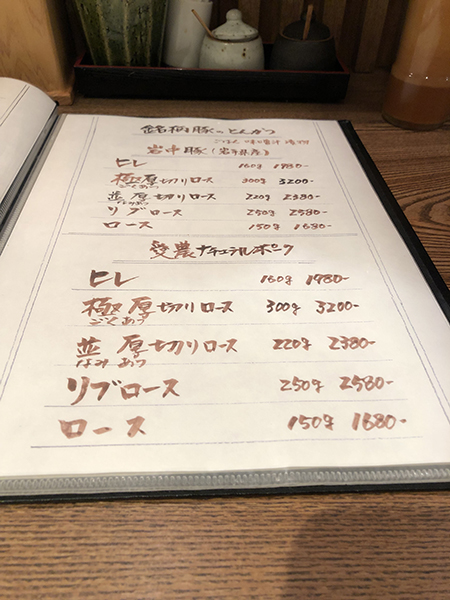 銘柄豚のとんかつ
ごはん 味噌汁 漬物
岩中豚(岩手県産)
ヒレ 160g 1980-
極厚切りロース 300g 3200-
ごくあつ
並厚切りロース 220g 2380-
なみあつ
リブロース 250g 2580-
ロース 150g 1680-
愛農ナチュラルポーク
ヒレ 160g 1980-
極厚切りロース 300g 3200-
ごくあつ
並厚切りロース 220g 2380-
なみあつ
リブロース 250g 2580-
ロース 150g 1680-